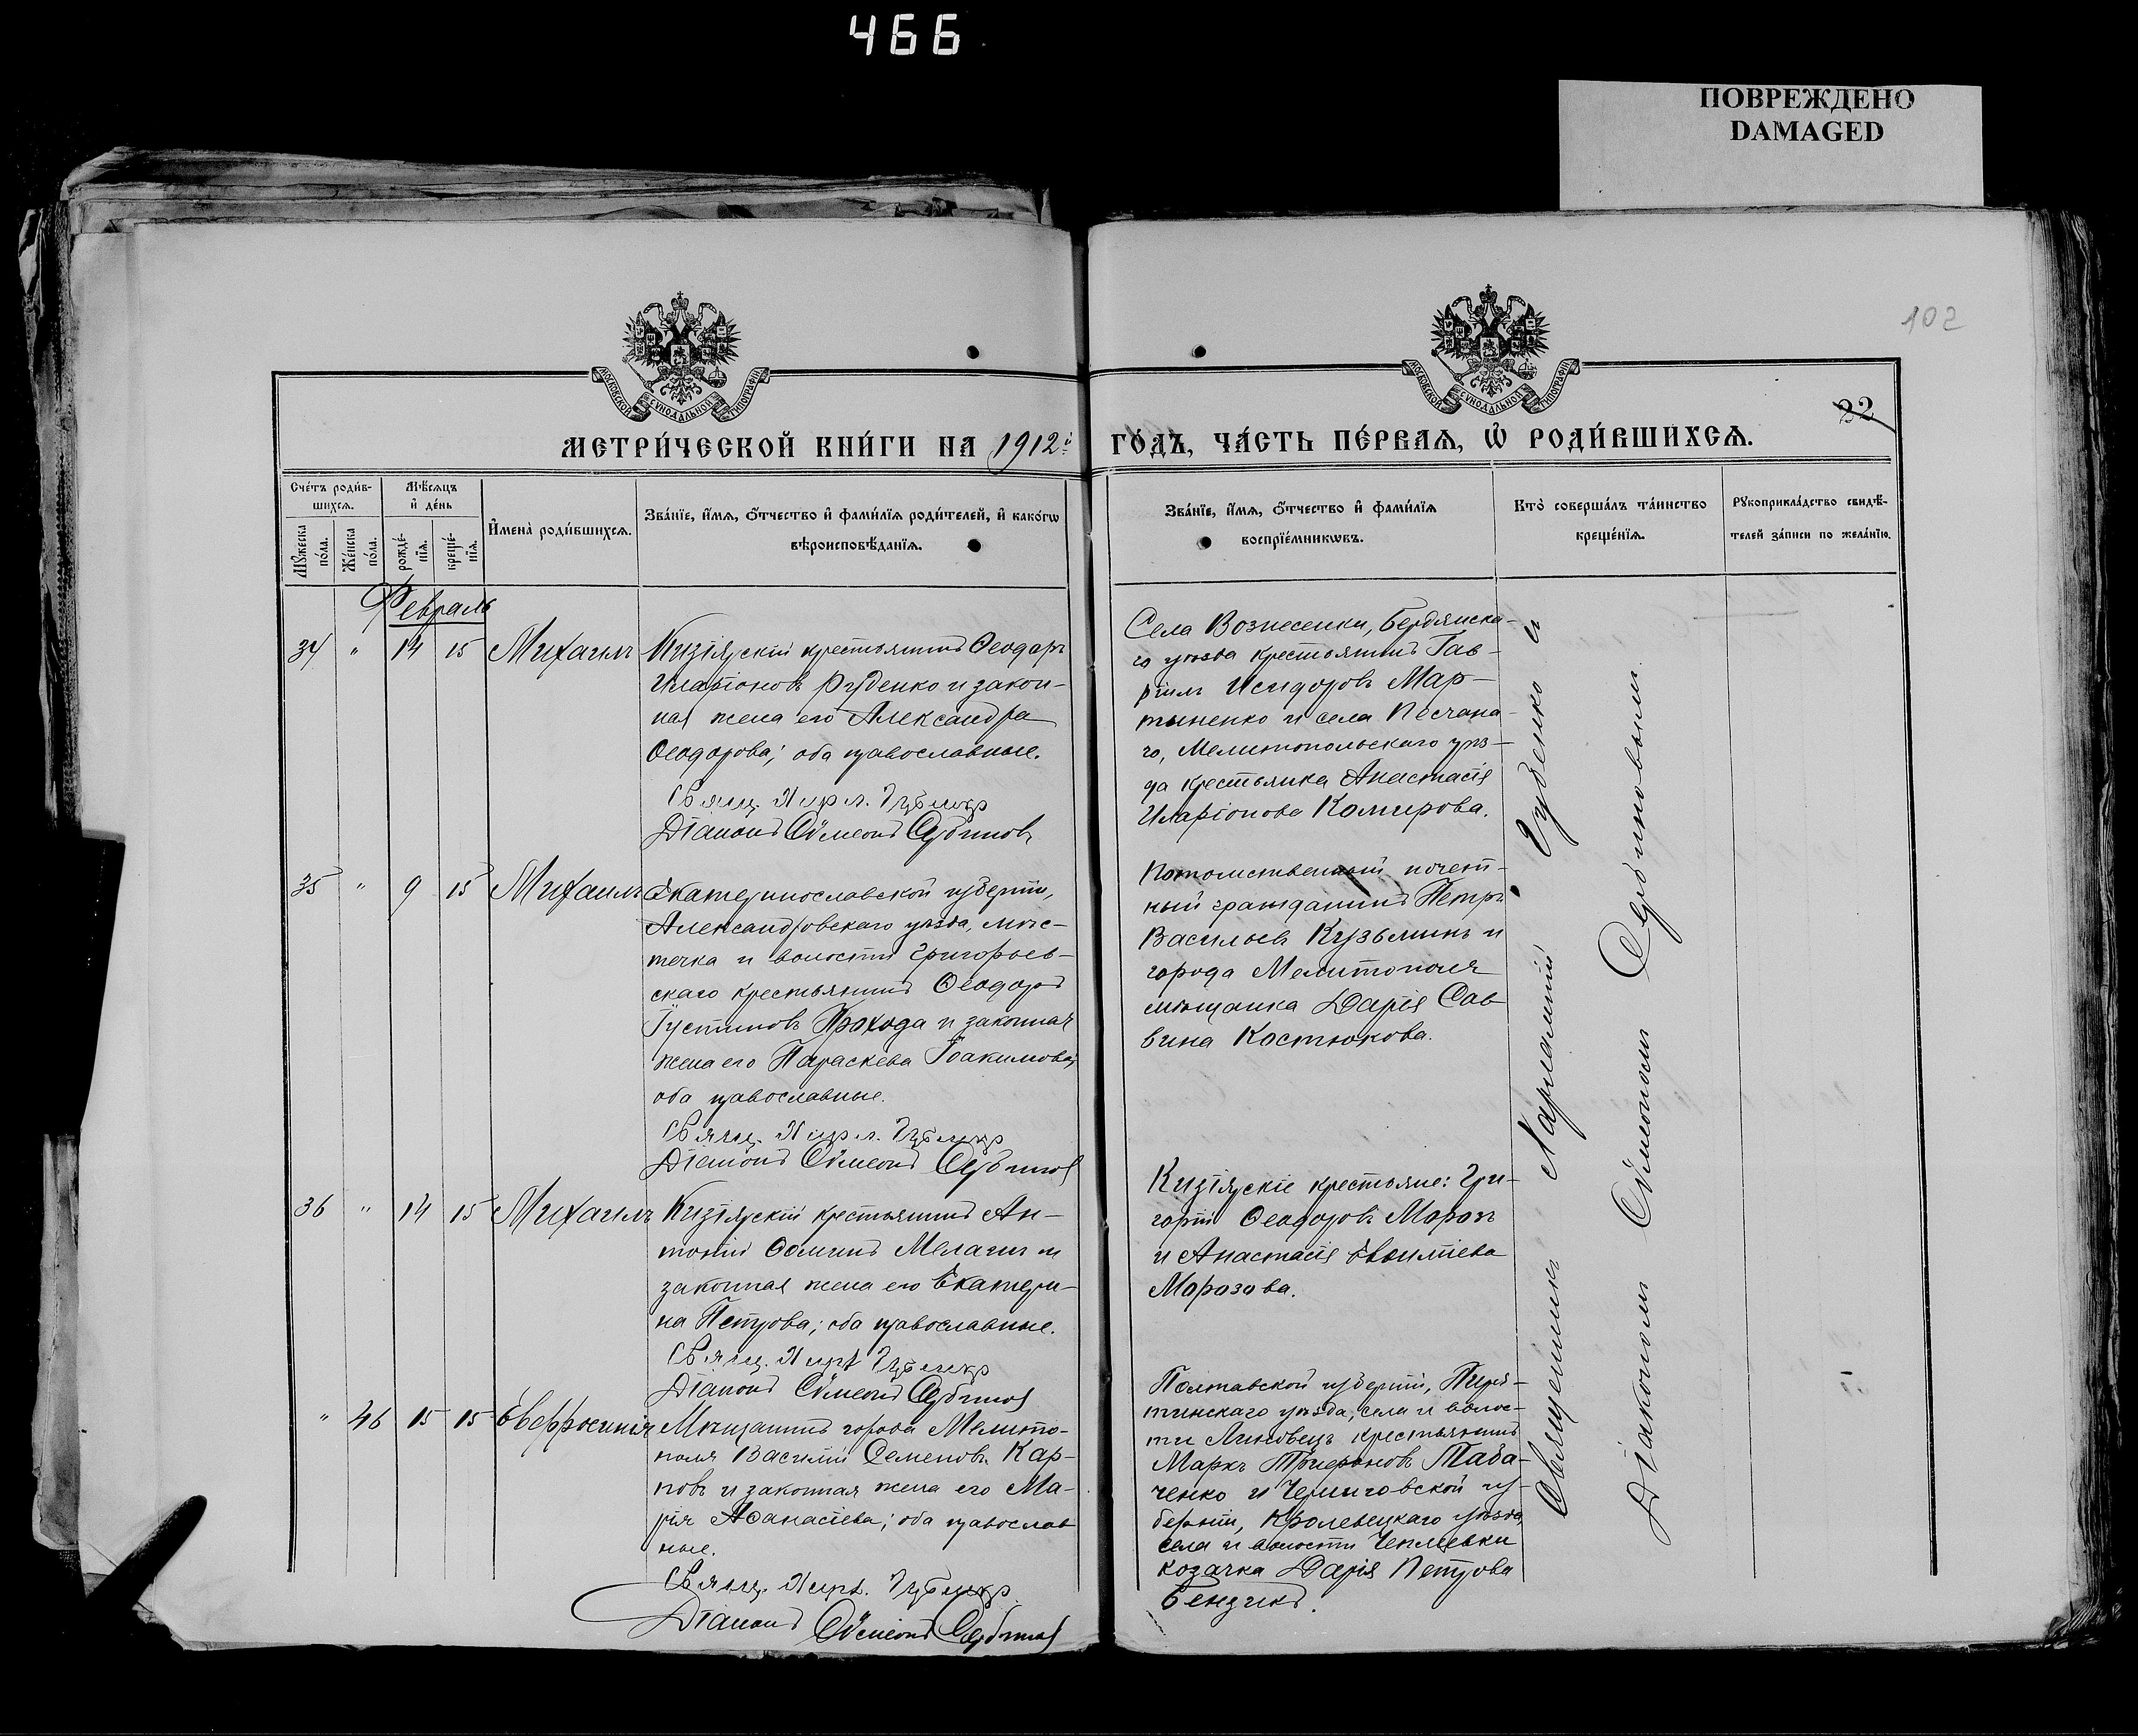 466
ПОВРЕЖДЕНО
DAMAGED
102
22
МОСКОВСКОЙ СѴНОДАЛЬНОЙ ТИПОГРАФІИ
МОСКОВСКОЙ СѴНОДАЛЬНОЙ ТИПОГРАФІИ
МЕТРИ́ЧЕСКОЙ КНИ́ГИ НА 1912й ГО́ДЪ, ЧА́СТЬ ПЕ́РВАѦ, Ѡ҆ РОДИ́ВШИХСѦ.
Сче́тъ роди́в-
шихсѧ.
Мꙋ́жеска по́ла.
Же́нска по́ла.
Мѣ́сѧцъ
и҆ де́нь
рожде́-
нїѧ.
креще́-
нїѧ.
И҆мена̀ роди́вшихсѧ.
Зва́нїе, и҆́мѧ, ѻ҆́тчество и҆ фами́лїѧ роди́телей, и҆ како́гѡ
вѣроисповѣ́данїѧ.
Зва́нїе, и҆́мѧ, ѻ҆́тчество и҆ фами́лїѧ
воспрїе́мникѡвъ.
Кто̀ соверша́лъ та́инство
креще́нїѧ.
Рꙋкоприкла́дство свидѣ́-
телей за́писи по жела́нїю.
Февраль
34 " 14 15 Михаилъ
Кизіярскій крестьянинъ Ѳеодоръ
Иларіоновъ Руденко и закон-
ная жена его Александра
Ѳеодорова; оба православные.
Свящ. Харл. Губенко
Діаконъ Сѵмеонъ Сербиновъ
Села Вознесенки, Бердянска-
го уѣзда крестьянинъ Гав-
ріилъ Исидоровъ Мар-
тыненко и села Песчана-
го, Мелитопольскаго уѣз-
да крестьянка Анастасія
Иларіонова Комирова.
35 " 9 15 Михаилъ
Екатеринославской губерніи,
Александровскаго уѣзда, мѣс-
течка и волости Григорьев-
скаго крестьянинъ Ѳеодоръ
Іустиновъ Прохода и законная
жена его Параскева Іоакимова;
оба православные.
Свящ. Харл. Губенко
Діаконъ Сѵмеонъ Сербиновъ
Потомственный почет-
ный гражданинъ Петръ
Васильевъ Кузьминъ и
города Мелитополя
мѣщанка Дарія Сав
вина Костюкова.
36 " 14 15 Михаилъ
Кизіярскій крестьянинъ Ан-
тоній Ѳоминъ Мелагин и
законная жена его Екатери-
на Петрова; оба православные.
Свящ. Харл. Губенко
Діаконъ Сѵмеонъ Сербиновъ
Кизіярскіе крестьяне: Гри-
горій Ѳеодоровъ Морозъ
и Анастасія
Морозова.
" 46 15 15 Евфросинія
Мѣщанинъ города Мелито-
поля Василій Семеновъ Кар-
повъ и законная жена его Ма-
рія Аѳанасіева; оба православ
ные.
Свящ. Харл. Губенко
Діаконъ Сѵмеонъ Сербиновъ
Полтавской губерніи, Пиря-
тинскаго уѣзда, села и волос-
ти Линовецъ крестьянинъ
Маркъ Таба-
ченко и Черниговской гу-
берніи, Кролевецкаго уѣзда,
села и волости Чеплеевки
козачка Дарія Петрова
Бензикъ.
Священникъ Харлампій Губенко съ
Діакономъ Сѵмеономъ Сербиновымъ.